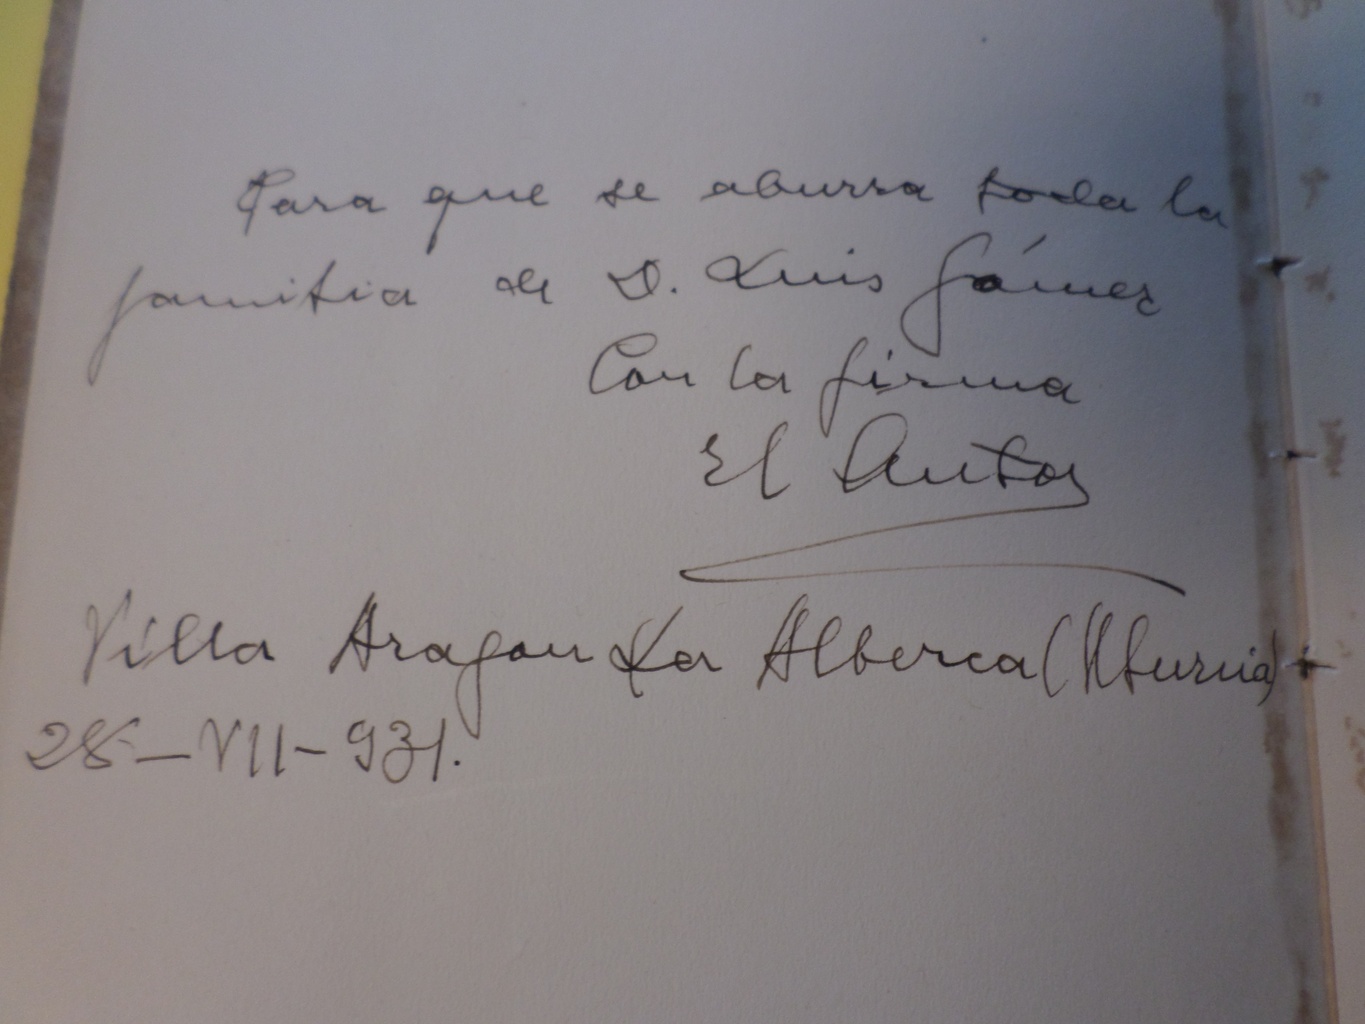 Para que se aburra toda la
familia de D. Luis Gámez
Con la firma
El Autor
Villa Aragon La Alberca (Murcia)
28-VII-931.